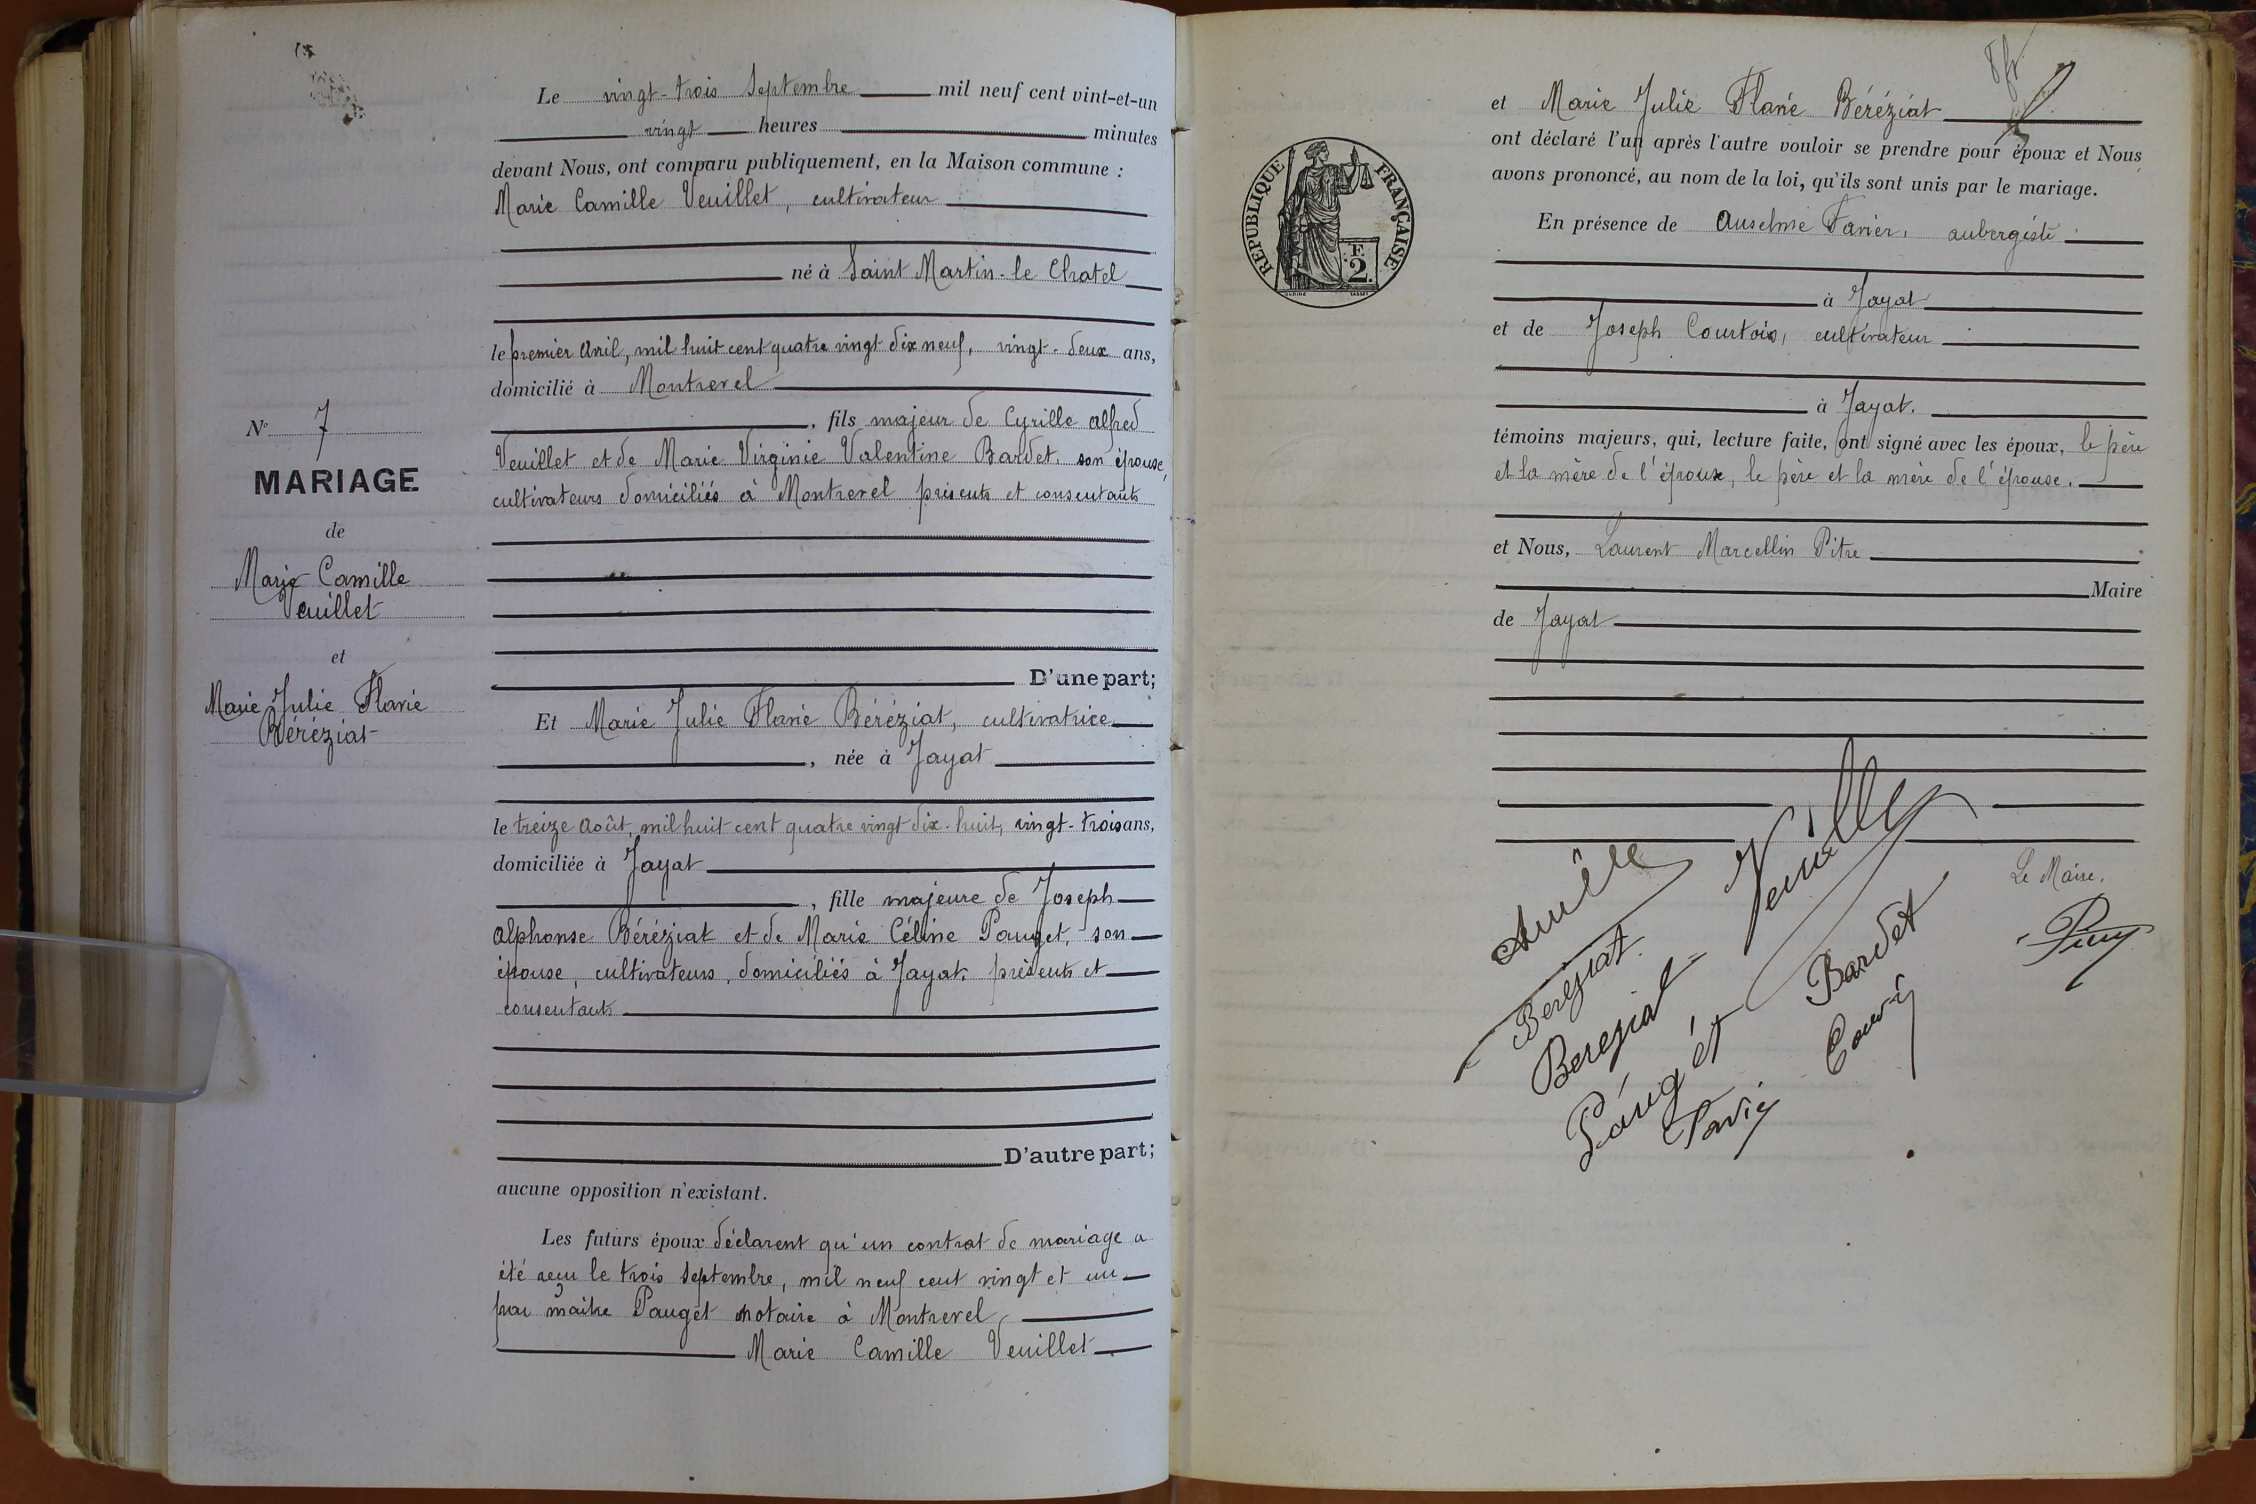 Le vingt-trois Septembre mil neuf cent vint-et-un
vingt heures minutes
devant Nous, ont comparu publiquement, en la Maison commune :
Marie Camille Veuillet, cultivateur
né à Saint Martin-le Chatel
le premier Avril, mil huit cent quatre vingt dix neuf, vingt-deux ans,
domicilié à Montrevel
, fils majeur de Cyrille Alfred
Veuillet et de Marie Virginie Valentine Bardet, son épouse,
cultivateurs domiciliés à Montrevel présents et consentants
D'une part;
Et Marie Julie Flavie Béréziat, cultivatrice
, née à Jayat
le treize Août, mil huit cent quatre vingt dix-huit, vingt-trois ans,
domiciliée à Jayat
, fille majeure de Joseph
Alphonse Béréziat et de Marie Céline Pauget, son
épouse, cultivateurs, domiciliés à Jayat présents et
consentants
D'autre part;
aucune opposition n'existant.
Les futurs époux déclarent qu'un contrat de mariage a
été reçu le trois Septembre, mil neuf cent vingt et un
par maître Pauget notaire à Montrevel
Marie Camille Veuillet
N° 7
MARIAGE
de
Marie Camille
Veuillet
et
Marie Julie Flavie
Béréziat
et Marie Julie Flavie Béréziat
ont déclaré l'un après l'autre vouloir se prendre pour époux et Nous
avons prononcé, au nom de la loi, qu'ils sont unis par le mariage.
En présence de Anselme Favier, aubergiste
à Jayat
et de Joseph Courtois, cultivateur
à Jayat.
témoins majeurs, qui, lecture faite, ont signé avec les époux, le père
et la mère de l'époux, le père et la mère de l'épouse.
et Nous, Laurent Marcellin Pitre
Maire
de Jayat
RÉPUBLIQUE FRANÇAISE
F.
2
Le Maire,
Veuillet
Bereziat
Bereziat
Bardet
Pauget